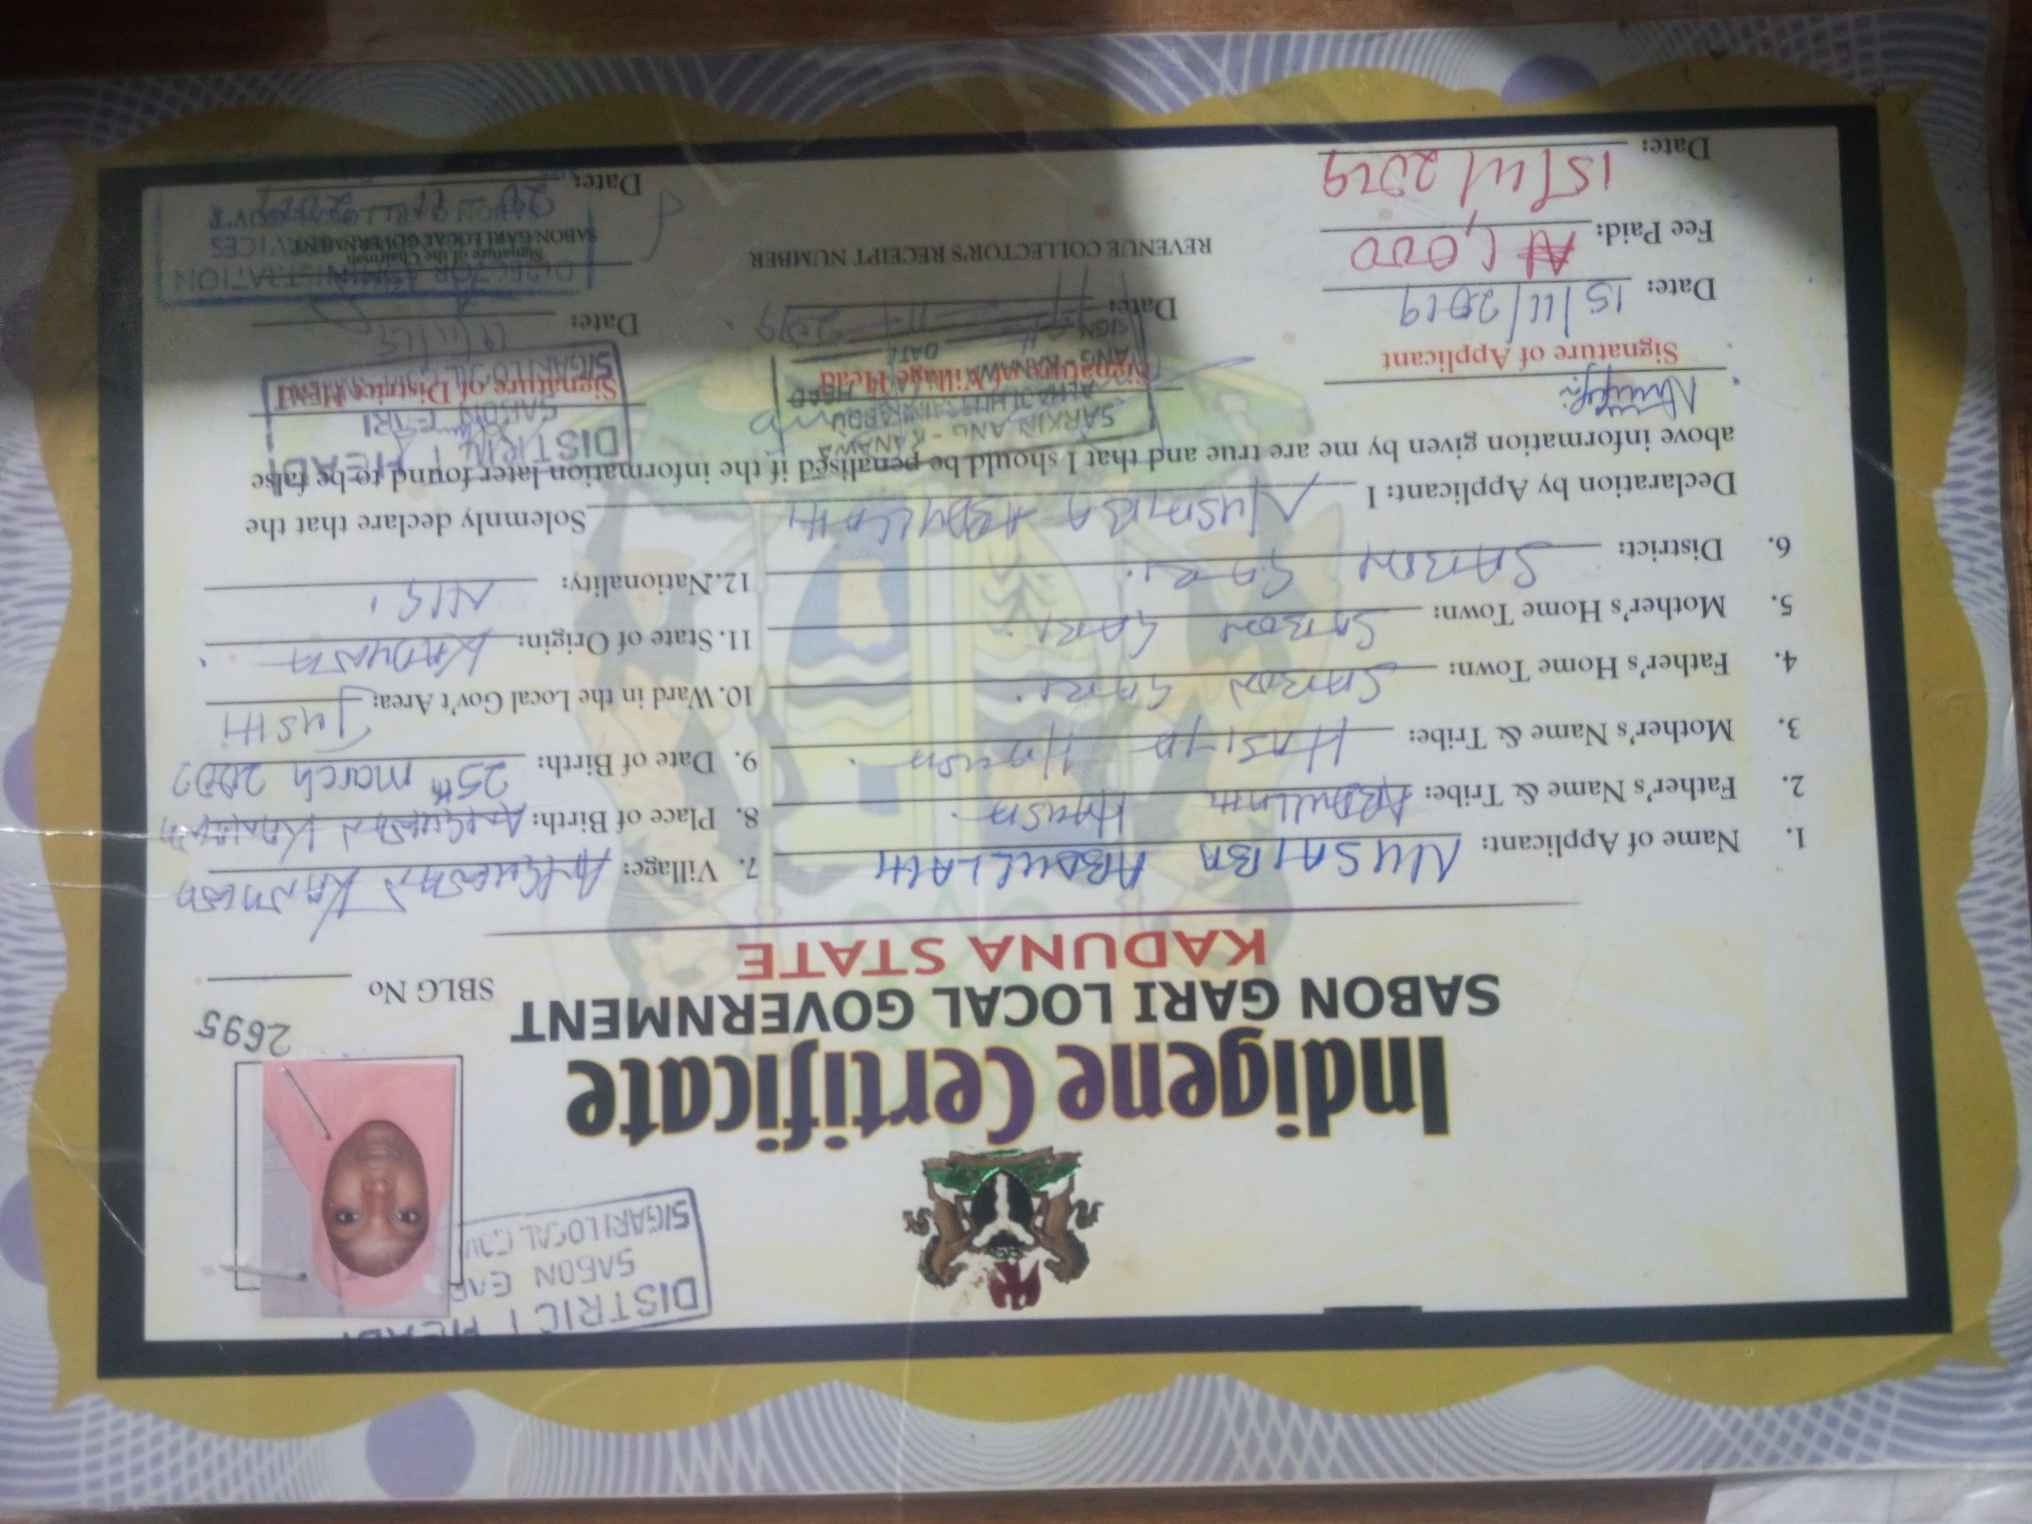 DISTRICT HEAD
SABON GAR
S/GARI LOCAL GOV
Indigene Certificate
SABON GARI LOCAL GOVERNMENT
KADUNA STATE
2695
SBLG No
1. Name of Applicant: NUSAIBA ABDULLAHI
2. Father's Name & Tribe: ABDULLAHI HAUSA
3. Mother's Name & Tribe: HAUSA
4. Father's Home Town: SABON GARI
5. Mother's Home Town: SABON GARI
6. District: SABON GARI
7. Village:
8. Place of Birth:
9. Date of Birth: 25th march
10. Ward in the Local Gov't Area:
11. State of Origin: KADUNA
12. Nationality: NIG
Declaration by Applicant: I NUSAIBA ABDULLAHI Solemnly declare that the
above information given by me are true and that I should be penalised if the information later found to be false
DISTRICT HEAD
SABON GARI
SARKIN ANG-KANAWA
Signature of Applicant
Signature of Village Head
Signature of District Head
SIGN DATE
Date: 15/11/2019
Date: 2019
Date:
Fee Paid: ₦1,000
REVENUE COLLECTOR'S RECEIPT NUMBER
DIRECTOR ADMINISTRATION
Signature of the Chairman
SABON GARI LOCAL GOVERNMENT
Date: 15/11/2019
Date: